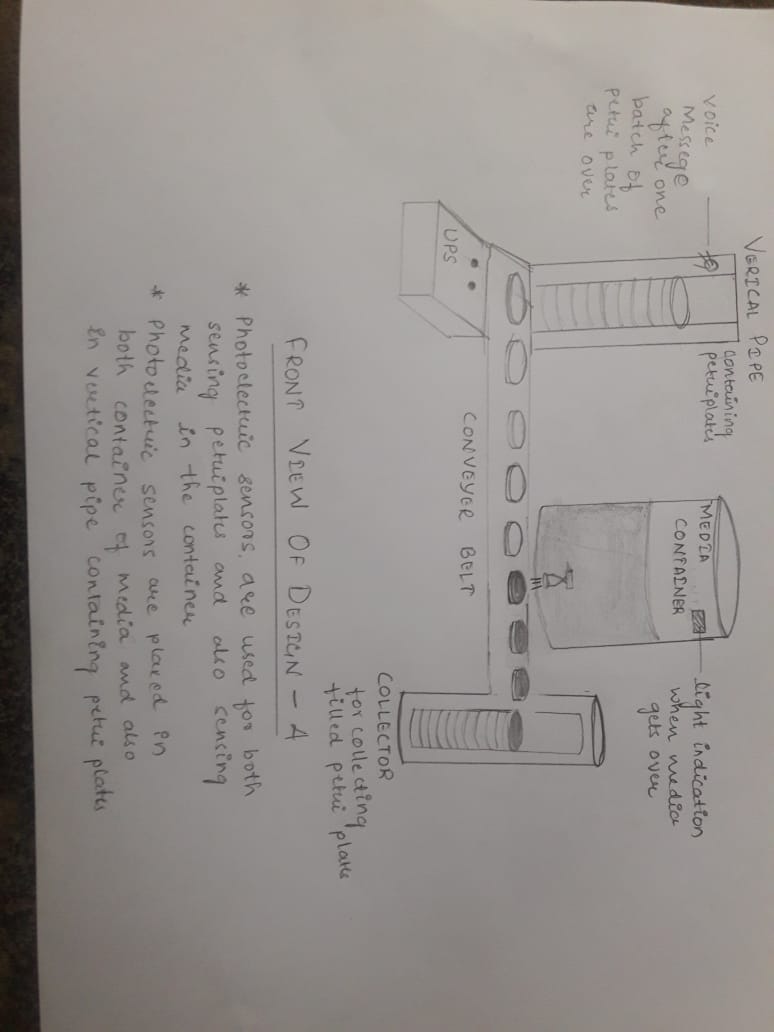 VERICAL PIPE
containing
petriplates
voice
Messege
after one
batch of
petri plates
are over
MEDIA
CONTAINER
light indication
when media
gets over
UPS
CONVEYER BELT
COLLECTOR
for collecting
filled petri plates
FRONT VIEW OF DESIGN - A
* Photoelectric sensors, are used for both
sensing petriplates and also sensing
media in the container
* Photoelectric sensors are placed in
both container of media and also
in vertical pipe containing petri plates